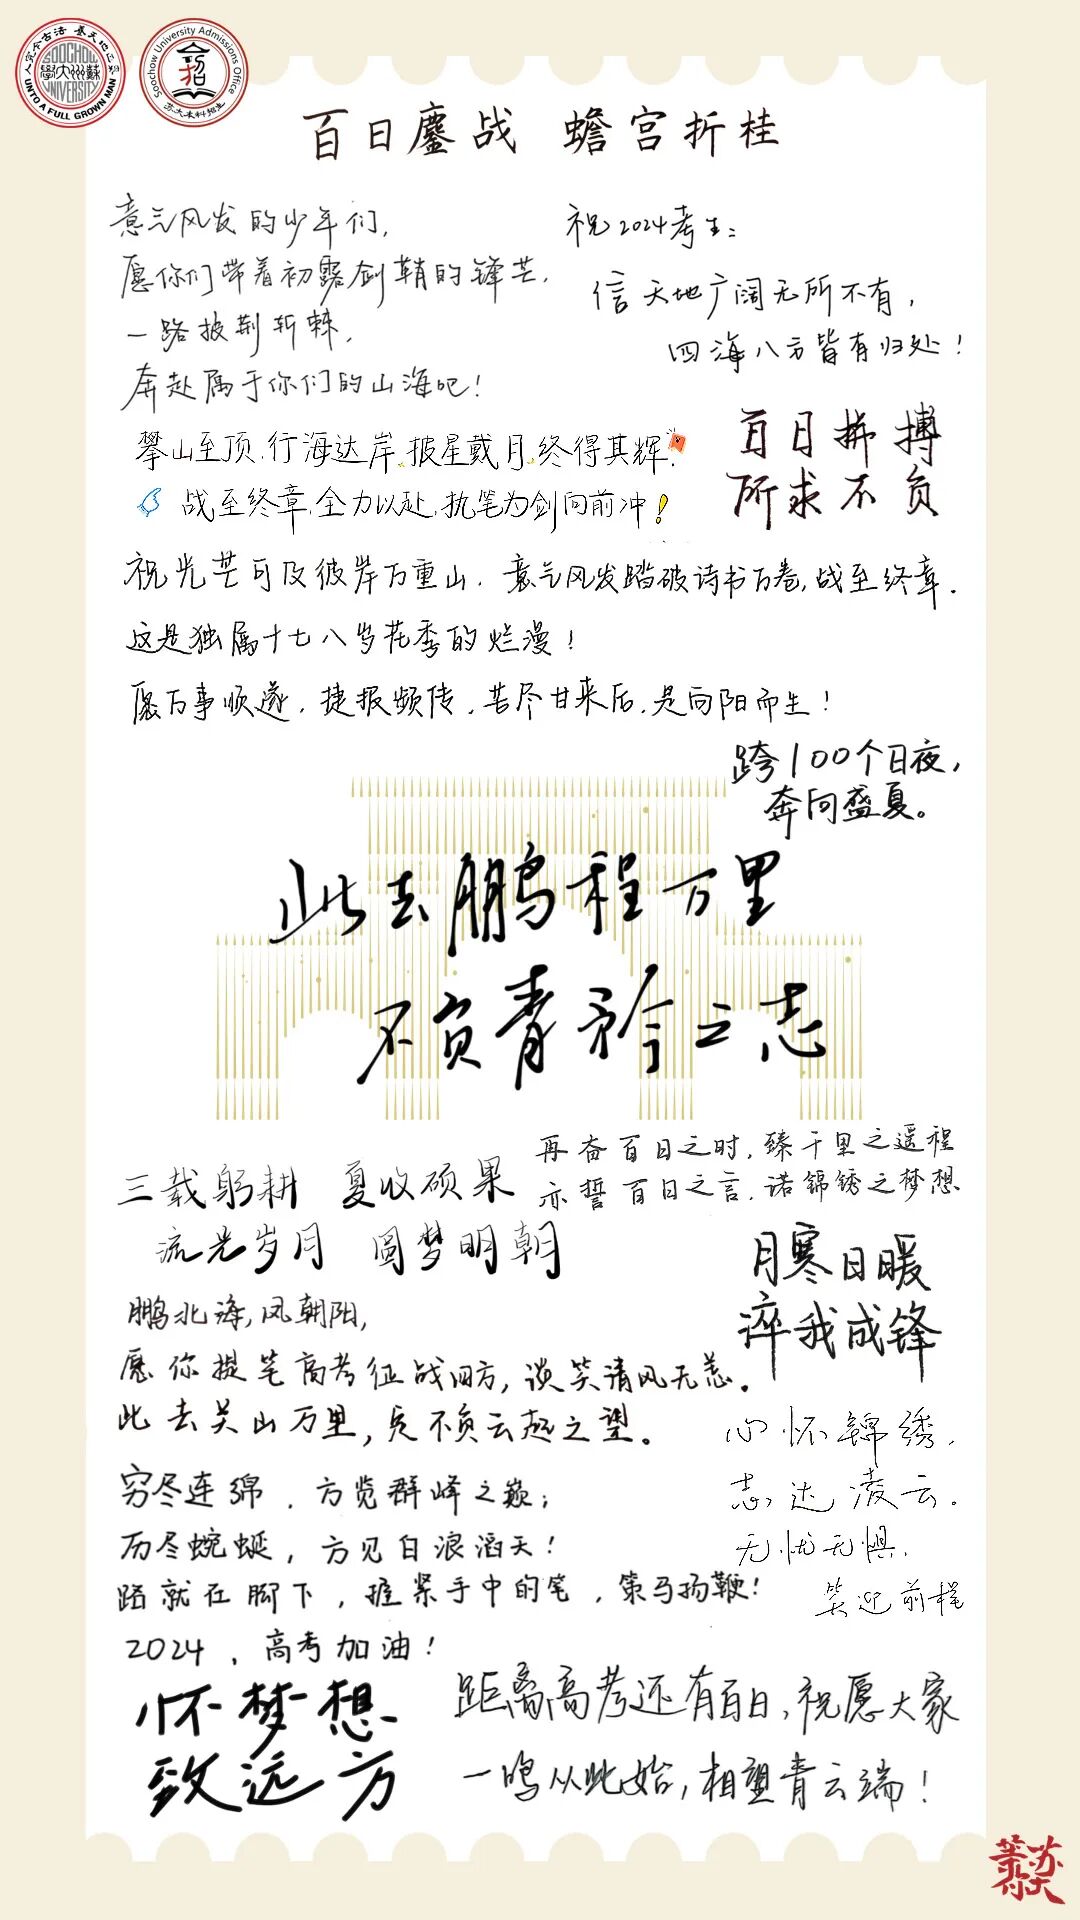 养天地正气 法古今完人
SOOCHOW UNIVERSITY
UNTO A FULL GROWN MAN
Soochow University Admissions Office
苏大本科招生
百日鏖战 蟾宫折桂
意气风发的少年们,
愿你们带着初露剑鞘的锋芒,
一路披荆斩棘,
奔赴属于你们的山海吧!
祝2024考生:
信天地广阔无所不有,
四海八方皆有归处!
攀山至顶,行海达岸,披星戴月,终得其辉.
战至终章,全力以赴,执笔为剑向前冲!
百日拼搏
所求不负
祝光芒可及彼岸万重山.意气风发踏破诗书万卷,战至终章.
这是独属十七八岁花季的烂漫!
愿万事顺遂,捷报频传,苦尽甘来后,是向阳而生!
跨100个日夜,
奔向盛夏。
此去鹏程万里
不负青矜之志
再奋百日之时,臻千里之遥程
亦誓百日之言,诺锦锈之梦想
三载躬耕 夏收硕果
流光岁月 圆梦明朝
月寒日暖
淬我成锋
鹏北海,凤朝阳,
愿你提笔高考征战四方,谈笑清风无恙。
此去关山万里,定不负云起之望。
心怀锦绣,
志达凌云.
无忧无惧,
笑迎前程
穷尽连绵,方览群峰之巅;
历尽蜿蜒,方见白浪滔天!
路就在脚下,握紧手中的笔,策马扬鞭!
2024,高考加油!
怀梦想
致远方
距离高考还有百日,祝愿大家
一鸣从此始,相望青云端!